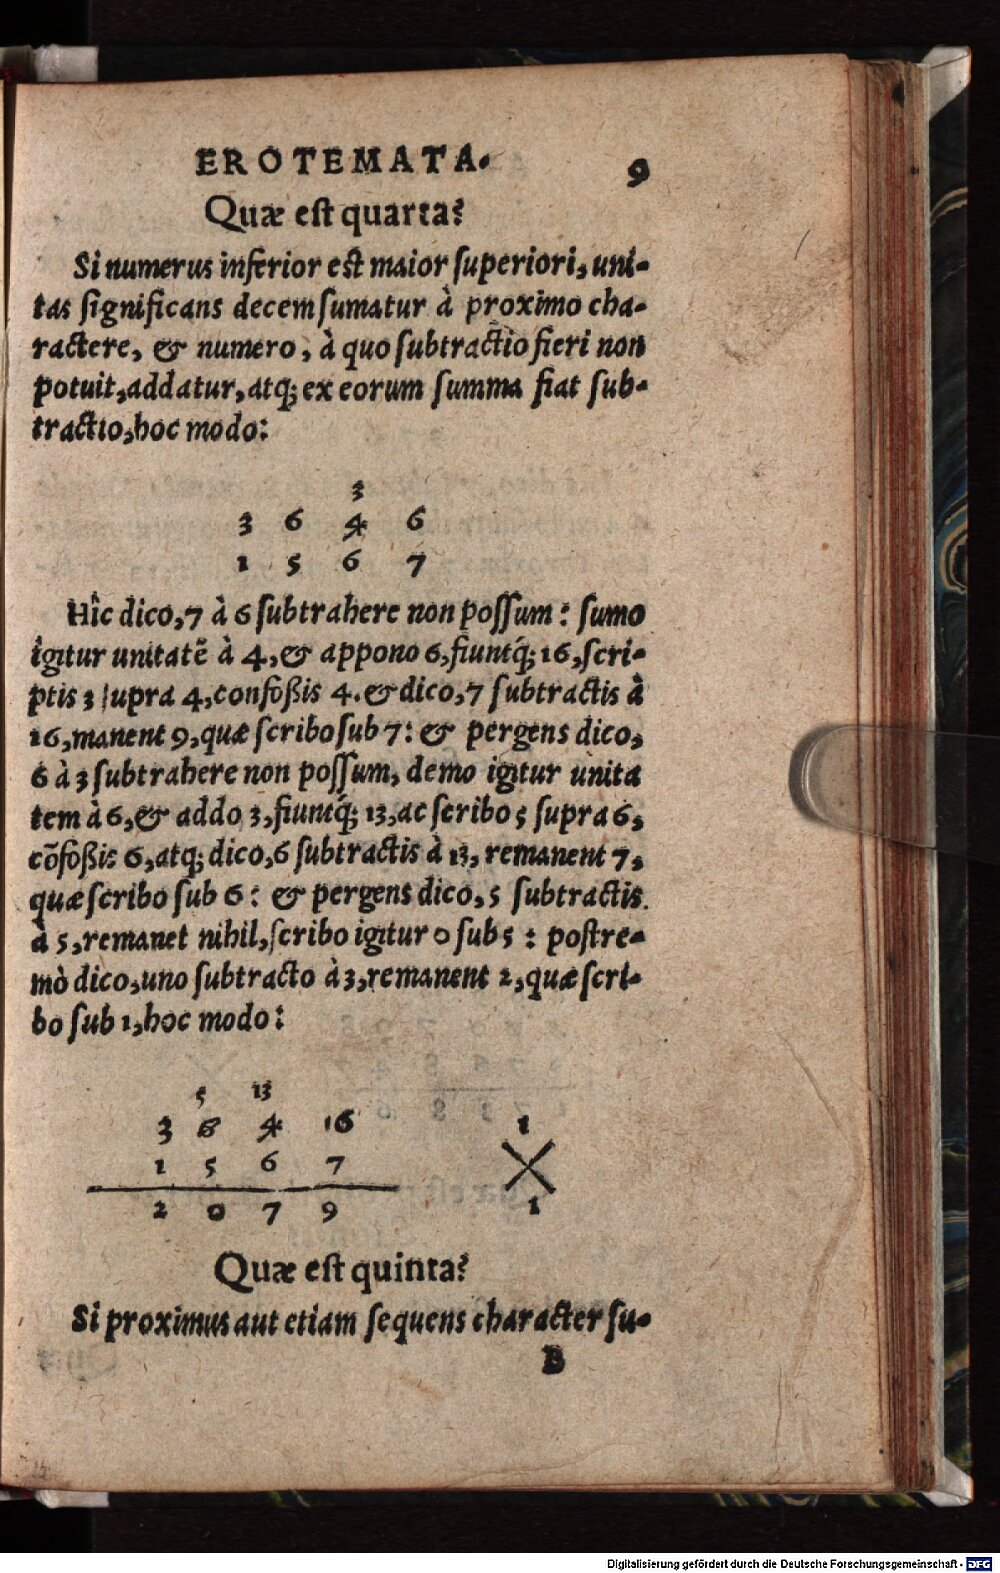 EROTEMATA. 9
Quæ eſt quarta?
Si numerus inferior eſt maior ſuperiori, uni-
tas ſignificans decem ſumatur à proximo cha-
ractere, & numero, à quo ſubtractio fieri non
potuit, addatur, atq; ex eorum ſumma fiat ſub-
tractio, hoc modo:
3
3 6 4 6
1 5 6 7
Hîc dico, 7 à 6 ſubtrahere non poſſum: ſumo
igitur unitatẽ à 4, & appono 6, fiuntq́; 16, ſcri-
ptis 3 ſupra 4, confoßis 4. & dico, 7 ſubtractis à
16, manent 9, quæ ſcribo ſub 7: & pergens dico,
6 à 3 ſubtrahere non poſſum, demo igitur unita
tem à 6, & addo 3, fiuntq́; 13, ac ſcribo 5 ſupra 6,
cõfoßis 6, atq; dico, 6 ſubtractis à 13, remanent 7,
quæ ſcribo ſub 6: & pergens dico, 5 ſubtractis
à 5, remanet nihil, ſcribo igitur 0 ſub 5: poſtre-
mò dico, uno ſubtracto à 3, remanent 2, quæ ſcri-
bo ſub 1, hoc modo:
5 13
3 6 4 16 1
1 5 6 7
2 0 7 9 1
Quæ eſt quinta?
Si proximus aut etiam ſequens character ſu-
B
Digitalisierung gefördert durch die Deutsche Forschungsgemeinschaft - DFG